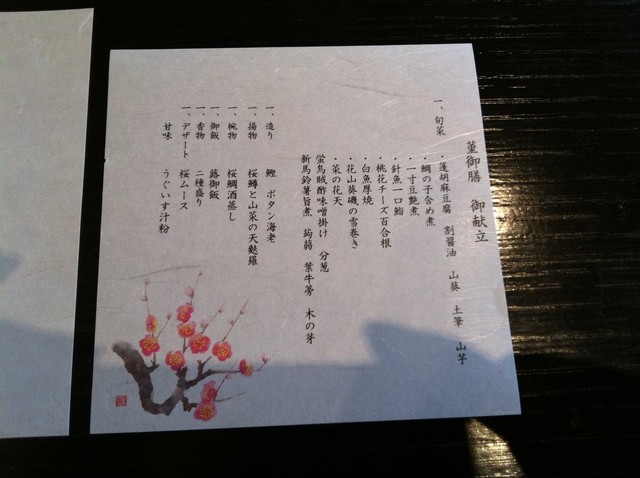 菫御膳 御献立
一、旬菜
・蓬胡麻豆腐 割醤油 山葵 土筆 山芋
・鯛の子含め煮
・一寸豆艶煮
・針魚一口鮨
・桃花チーズ百合根
・白魚厚焼
・花山葵磯の雪巻き
・菜の花天
蛍烏賊酢味噌掛け 分葱
新馬鈴薯旨煮 蒟蒻 葉牛蒡 木の芽
一、造り 鰹 ボタン海老
一、揚物 桜鱒と山菜の天麩羅
一、椀物 桜鯛酒蒸し
一、御飯 蕗御飯
一、香物 二種盛り
一、デザート 桜ムース
甘味 うぐいす汁粉